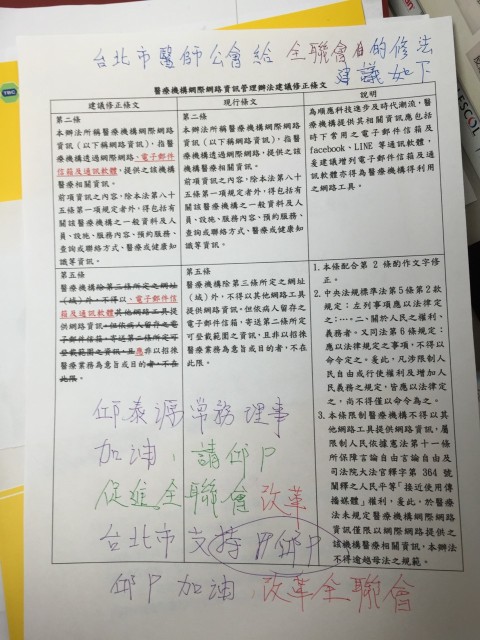 台北市醫師公會給 全聯會的修法
建議如下
醫療機構網際網路資訊管理辦法建議修正條文
建議修正條文
第二條
本辦法所稱醫療機構網際網路
資訊（以下稱網路資訊），指醫
療機構透過網際網路、電子郵件
信箱及通訊軟體，提供之該機構
醫療相關資訊。
前項資訊之內容，除本法第八十
五條第一項規定者外，得包括有
關該醫療機構之一般資料及人
員、設施、服務內容、預約服務、
查詢或聯絡方式、醫療或健康知
識等資訊。
現行條文
第二條
本辦法所稱醫療機構網際網路
資訊（以下稱網路資訊），指醫
療機構透過網際網路，提供之該
機構醫療相關資訊。
前項資訊之內容，除本法第八十
五條第一項規定者外，得包括有
關該醫療機構之一般資料及人
員、設施、服務內容、預約服務、
查詢或聯絡方式、醫療或健康知
識等資訊。
說明
為順應科技進步及時代潮流，醫
療機構提供其相關資訊應包括
時下常用之電子郵件信箱及
facebook、LINE 等通訊軟體，
爰建議增列電子郵件信箱及通
訊軟體亦得為醫療機構得利用
之網路工具。
第五條
醫療機構除第三條所定之網址
（域）外，不得以、電子郵件信
箱及通訊軟體其他網路工具
提供網路資訊，但依病人留存之電
子郵件信箱，寄送第二條所定可
登載範圍之資訊，且應非以招徠
醫療業務為意旨或目的者，不在
此限。
第五條
醫療機構除第三條所定之網址
（域）外，不得以其他網路工具
提供網路資訊，但依病人留存之
電子郵件信箱，寄送第二條所定
可登載範圍之資訊，且非以招徠
醫療業務為意旨或目的者，不在
此限。
1.本條配合第 2 條的作文字修
正。
2.中央法規標準法第5條第2款
規定：左列事項應以法律定
之：…. 二、關於人民之權利、
義務者。又同法第6條規定：
應以法律規定之事項，不得以
命令定之。爰此，凡涉限制人
民自由或行使權利及增加人
民義務之規定，皆應以法律定
之，尚不得僅以命令為之。
3.本條限制醫療機構不得以其
他網路工具提供網路資訊，屬
限制人民依據憲法第十一條
所保障言論自由言論自由及
司法院大法官釋字第 364 號
闡釋之人民平等「接近使用傳
播媒體」權利，爰此，於醫療
法未規定醫療機構網際網路
資訊僅限以網際網路提供之
該機構醫療相關資訊，本辦法
不得逾越母法之規範。
邱泰源常務理事
加油，請邱P
促進全聯會 改革
台北市 支持 邱P
邱P 加油 改革全聯會